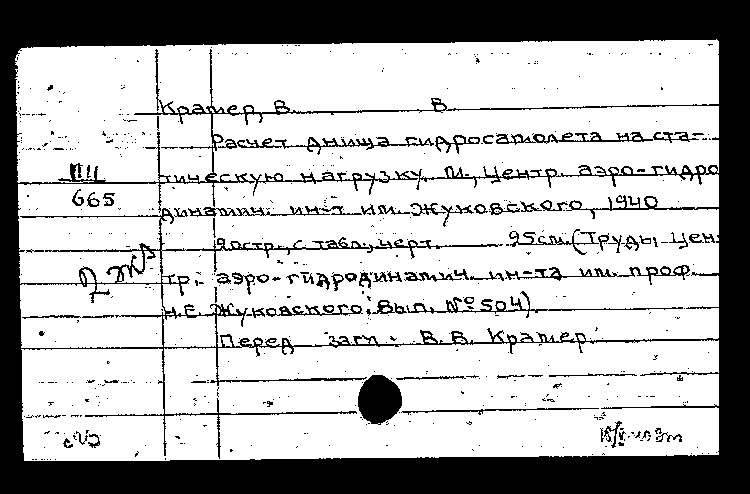 Крамер, В. В
Расчет днища гидросамолета на ста-
тическую нагрузку. М., Центр. аэро-гидро
динамич. ин-т им. Жуковского, 1940
665
20стр., с табл., черт. 25см. (Труды Цен
тр. аэро-гидродинамич. ин-та им. проф.
Н.Е. Жуковского. Вып. № 504).
Перед загл.: В. В. Крамер.